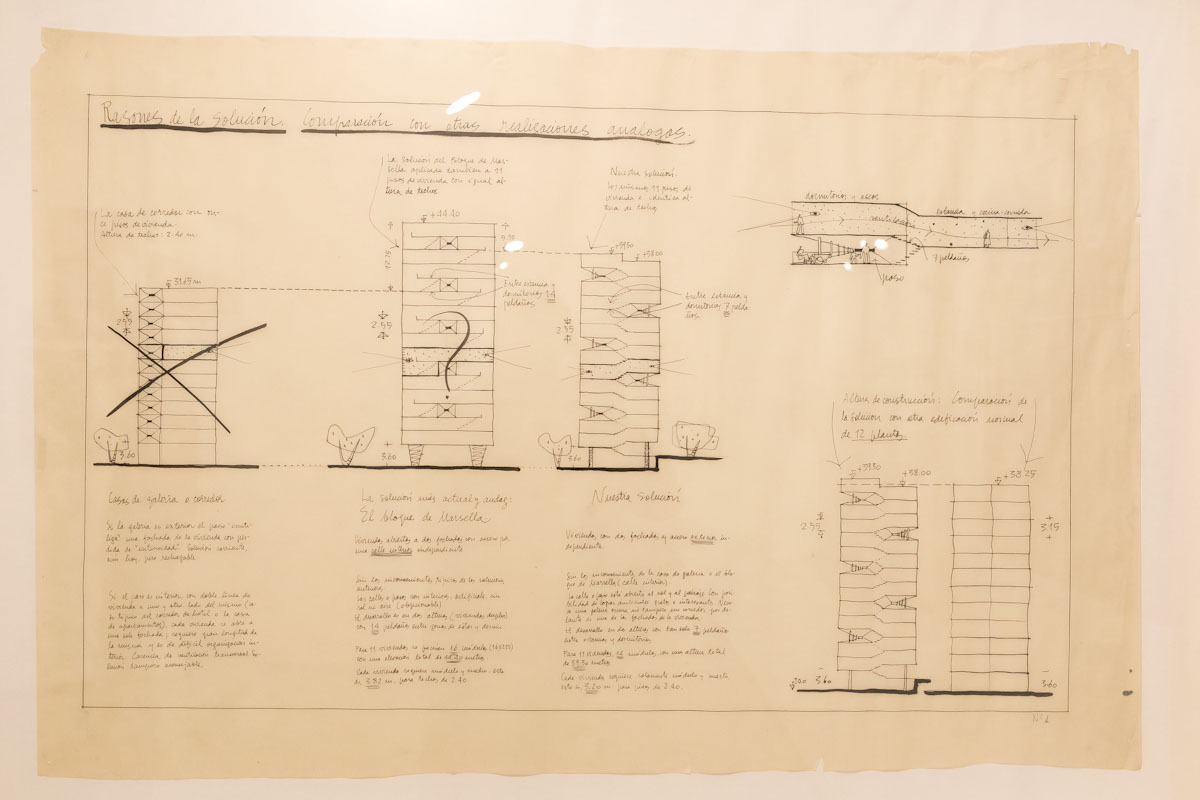 Razones de la solución. Comparación con otras realizaciones analogas.
La casa de corredor con on-
ce pisos de vivienda.
Altura de techos: 2.40 m.
31.65 m
2.55
3.60
La solución del Bloque de Mar-
sella aplicada también a 11
pisos de vivienda con igual al-
tura de techos
+44.40
12.75
5.10
2.55
Entre estancia y
dormitorios 14
peldaños
?
3.60
Nuestra solución.
Los mismos 11 pisos de
vivienda e identica al-
tura de techos
+39.30
+38.00
2.55
Entre estancia y
dormitorios 7 pelda-
ños.
3.60
dormitorios y aseos
estancia y cocina-comedor
ventilación
7 peldaños
paso
Altura de construcción: Comparación de
la solución con otra edificación normal
de 12 plantas.
+39.30
+38.00
+38.25
2.55
3.15
3.60
3.60
Casas de galería o corredor
Si la galería es exterior el paso
una fachada de la vivienda con pér-
dida de "intimidad". Solución corriente,
aún hoy, pero rechazable.
Si el paso es interior, con doble línea de
vivienda a uno y otro lado del mismo
típico del corredor de hotel o la casa
de apartamentos), cada vivienda se abre a
una sola fachada; requiere gran longitud de
la misma y es de difícil organización in-
terior. Carencia de ventilación transversal
tampoco aconsejable.
La solución más actual y audaz:
El bloque de Marsella
Viviendas abiertas a dos fachadas con acceso por
una calle interior independiente
Sin los inconvenientes típicos de las soluciones
anteriores.
Las calles o pasos son interiores, artificiales, sin
sol ni aire (objecionable)
El desarrollo es en dos alturas (viviendas duplex)
con 14 peldaños entre zonas de estar y dormir.
Para 11 viviendas se precisan 16 módulos (16x2.55)
con una elevación total de 44.40 metros.
Cada vivienda requiere módulo y medio, esto
es 3.82 m. para techos de 2.40
Nuestra solución
Viviendas con dos fachadas y acceso exterior in-
dependiente.
Sin los inconvenientes de la casa de galería o el blo-
que de Marsella (calle interior)
La calle o paso está abierta al sol y al paisaje con posi-
bilidad de lograr ambientes gratos e interesantes.
El desarrollo en dos alturas con tan solo 7 peldaños
entre estancia y dormitorios.
Para 11 viviendas, módulos, con una altura total
de 39.30 metros
Cada vivienda requiere solamente módulo y cuarto,
esto es, 3.20 m. para pisos de 2.40.
Nº 1